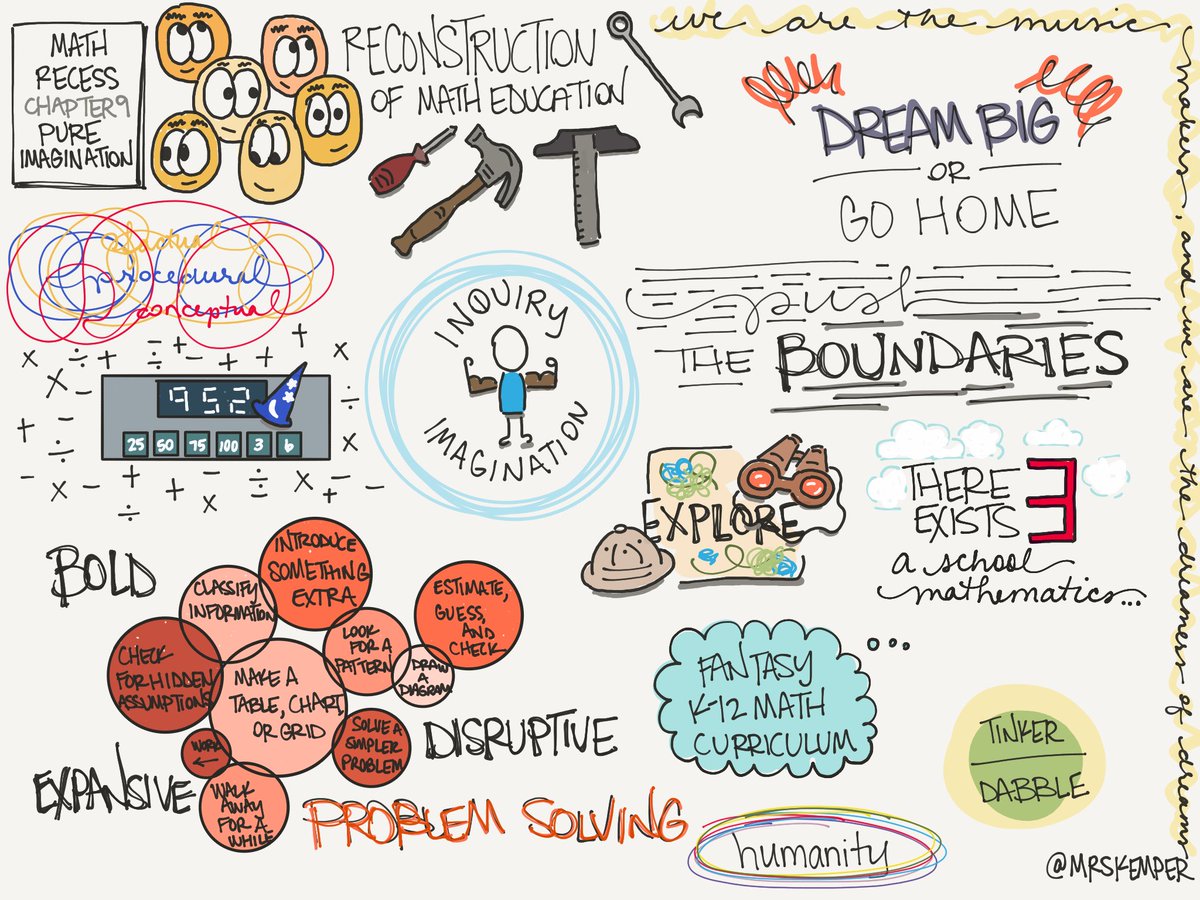 MATH
RECESS
CHAPTER 9
PURE
IMAGINATION
RECONSTRUCTION
OF MATH EDUCATION
we are the music
makers, and we are the dreamers of dreams
DREAM BIG
OR
GO HOME
factual
procedural
conceptual
952
25 50 75 100 3 6
INQUIRY
IMAGINATION
push
THE BOUNDARIES
EXPLORE
THERE
EXISTS
∃
a school
mathematics...
BOLD
INTRODUCE
SOMETHING
EXTRA
CLASSIFY
INFORMATION
ESTIMATE,
GUESS,
AND
CHECK
LOOK
FOR A
PATTERN
DRAW
A
DIAGRAM
CHECK
FOR HIDDEN
ASSUMPTIONS
MAKE A
TABLE, CHART,
OR GRID
SOLVE A
SIMPLER
PROBLEM
WORK
←
WALK
AWAY
FOR A
WHILE
DISRUPTIVE
EXPANSIVE
PROBLEM SOLVING
FANTASY
K-12 MATH
CURRICULUM
TINKER
DABBLE
humanity
@MRSKEMPER